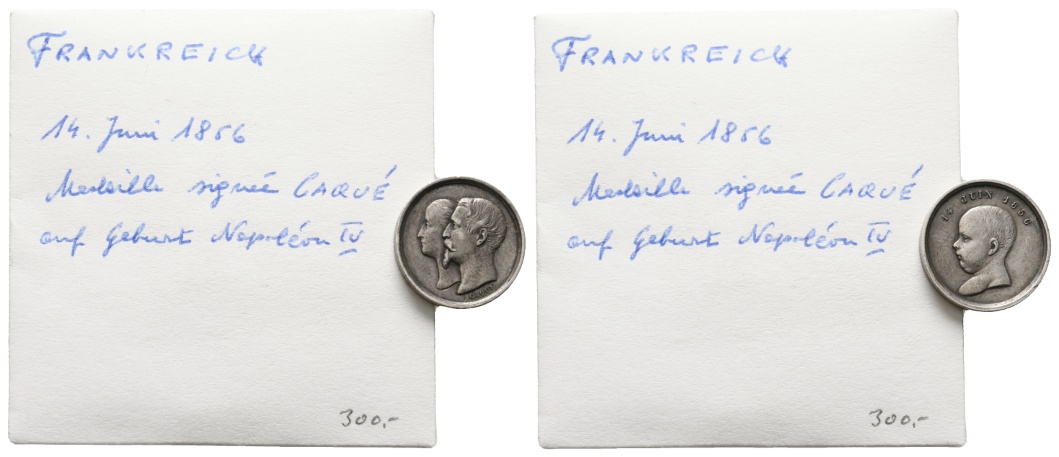 FRANKREICH
14. Juni 1856
Medaille signée CAQUÉ
auf Geburt Napoléon IV
300,-
FRANKREICH
14. Juni 1856
Medaille signée CAQUÉ
auf Geburt Napoléon IV
14 JUIN 1856
300,-